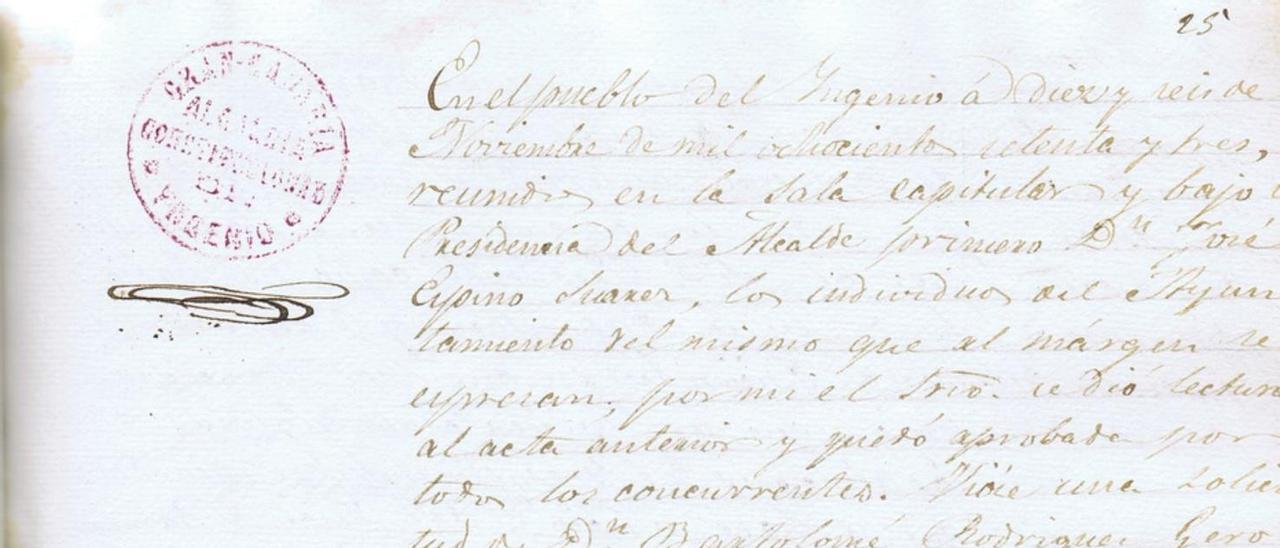 25
GRAN-CANARIA
ALCALDIA
CONSTITUCIONAL
DEL
YNGENIO
En el pueblo del Yngenio á diez y seis de
Noviembre de mil ochocientos setenta y tres,
reunidos en la Sala capitular y bajo l
Presidencia del Alcalde primero Dn José
Espino Suarez, los individuos del Ayun
tamiento del mismo que al márgen se
espresan, por mi el Srio. se dió lectura
al acta anterior y quedó aprobada por
todos los concurrentes. Vióse una solici
tud de Dn Bartolomé Rodriguez